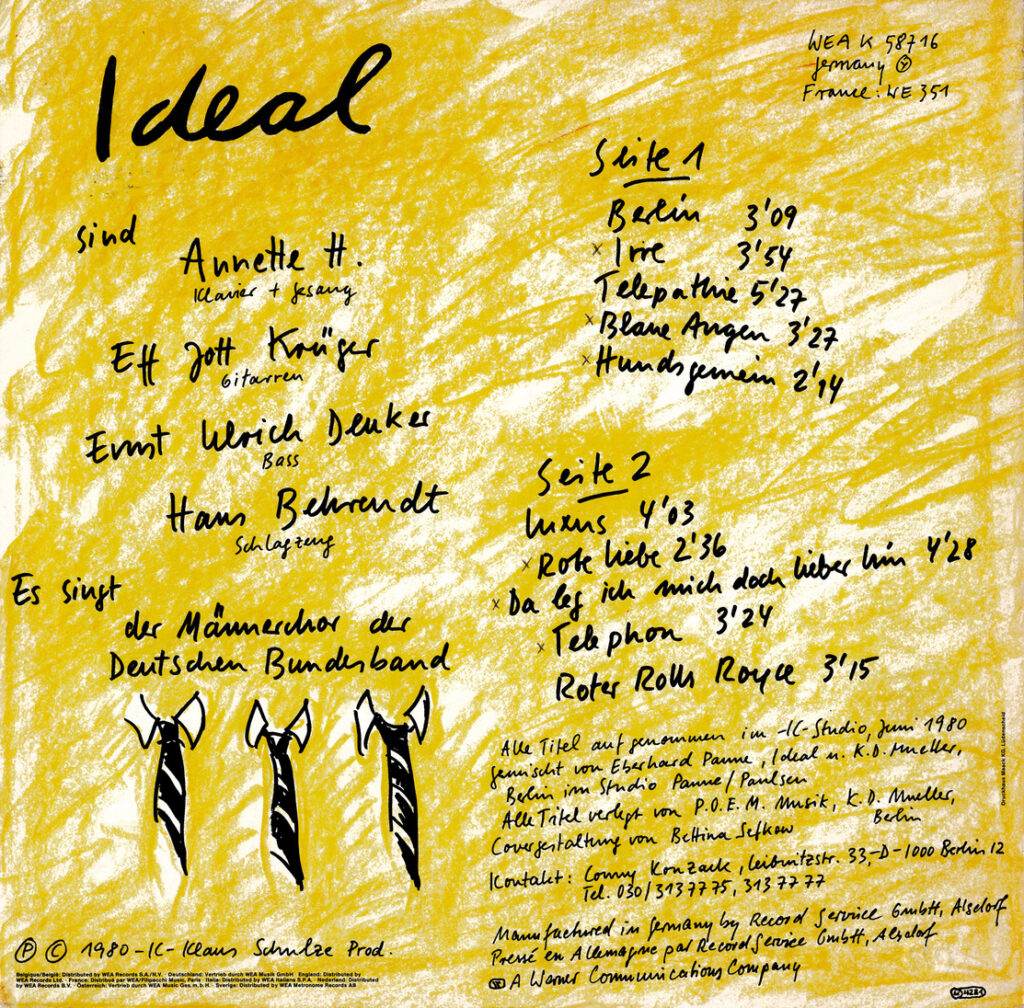 Ideal
sind
Annette H.
Klavier + Gesang
Eff Jott Krüger
Gitarren
Ernst Ulrich Deuker
Bass
Hans Behrendt
Schlagzeug
Es singt
der Männerchor der
Deutschen Bundesband
WEA K 58716
Germany
France: WE 351
Seite 1
Berlin 3'09
x Irre 3'54
Telepathie 5'27
x Blaue Augen 3'27
x Hundsgemein 2'14
Seite 2
Luxus 4'03
x Rote Liebe 2'36
x Da leg ich mich doch lieber hin 4'28
x Telephon 3'24
Roter Rolls Royce 3'15
Alle Titel aufgenommen im -IC-Studio, Juni 1980
gemischt von Eberhard Panne, Ideal u. K.D. Mueller,
Berlin im Studio Panne/Paulsen
Alle Titel verlegt von P.O.E.M. Musik, K.D. Mueller,
Berlin
Covergestaltung von Bettina Sefkow
Kontakt: Conny Konzack, Leibnitzstr. 33, -D-1000 Berlin 12
Tel. 030/313 77 75, 313 77 77
Manufactured in Germany by Record Service GmbH, Alsdorf
Pressé en Allemagne par Record Service GmbH, Alsdorf
A Warner Communications Company
℗ © 1980 -IC- Klaus Schulze Prod.
Belgique/België: Distributed by WEA Records S.A./N.V. · Deutschland: Vertrieb durch WEA Musik GmbH · England: Distributed by
WEA Records Ltd. · France: Distribué par WEA/Filipacchi Music, Paris · Italia: Distributed by WEA Italiana S.P.A. · Nederland: Distributed
by WEA Records B.V. · Österreich: Vertrieb durch WEA Music Ges.m.b.H. · Sverige: Distributed by WEA Metronome Records AB
Druckhaus Maack KG, Lüdenscheid